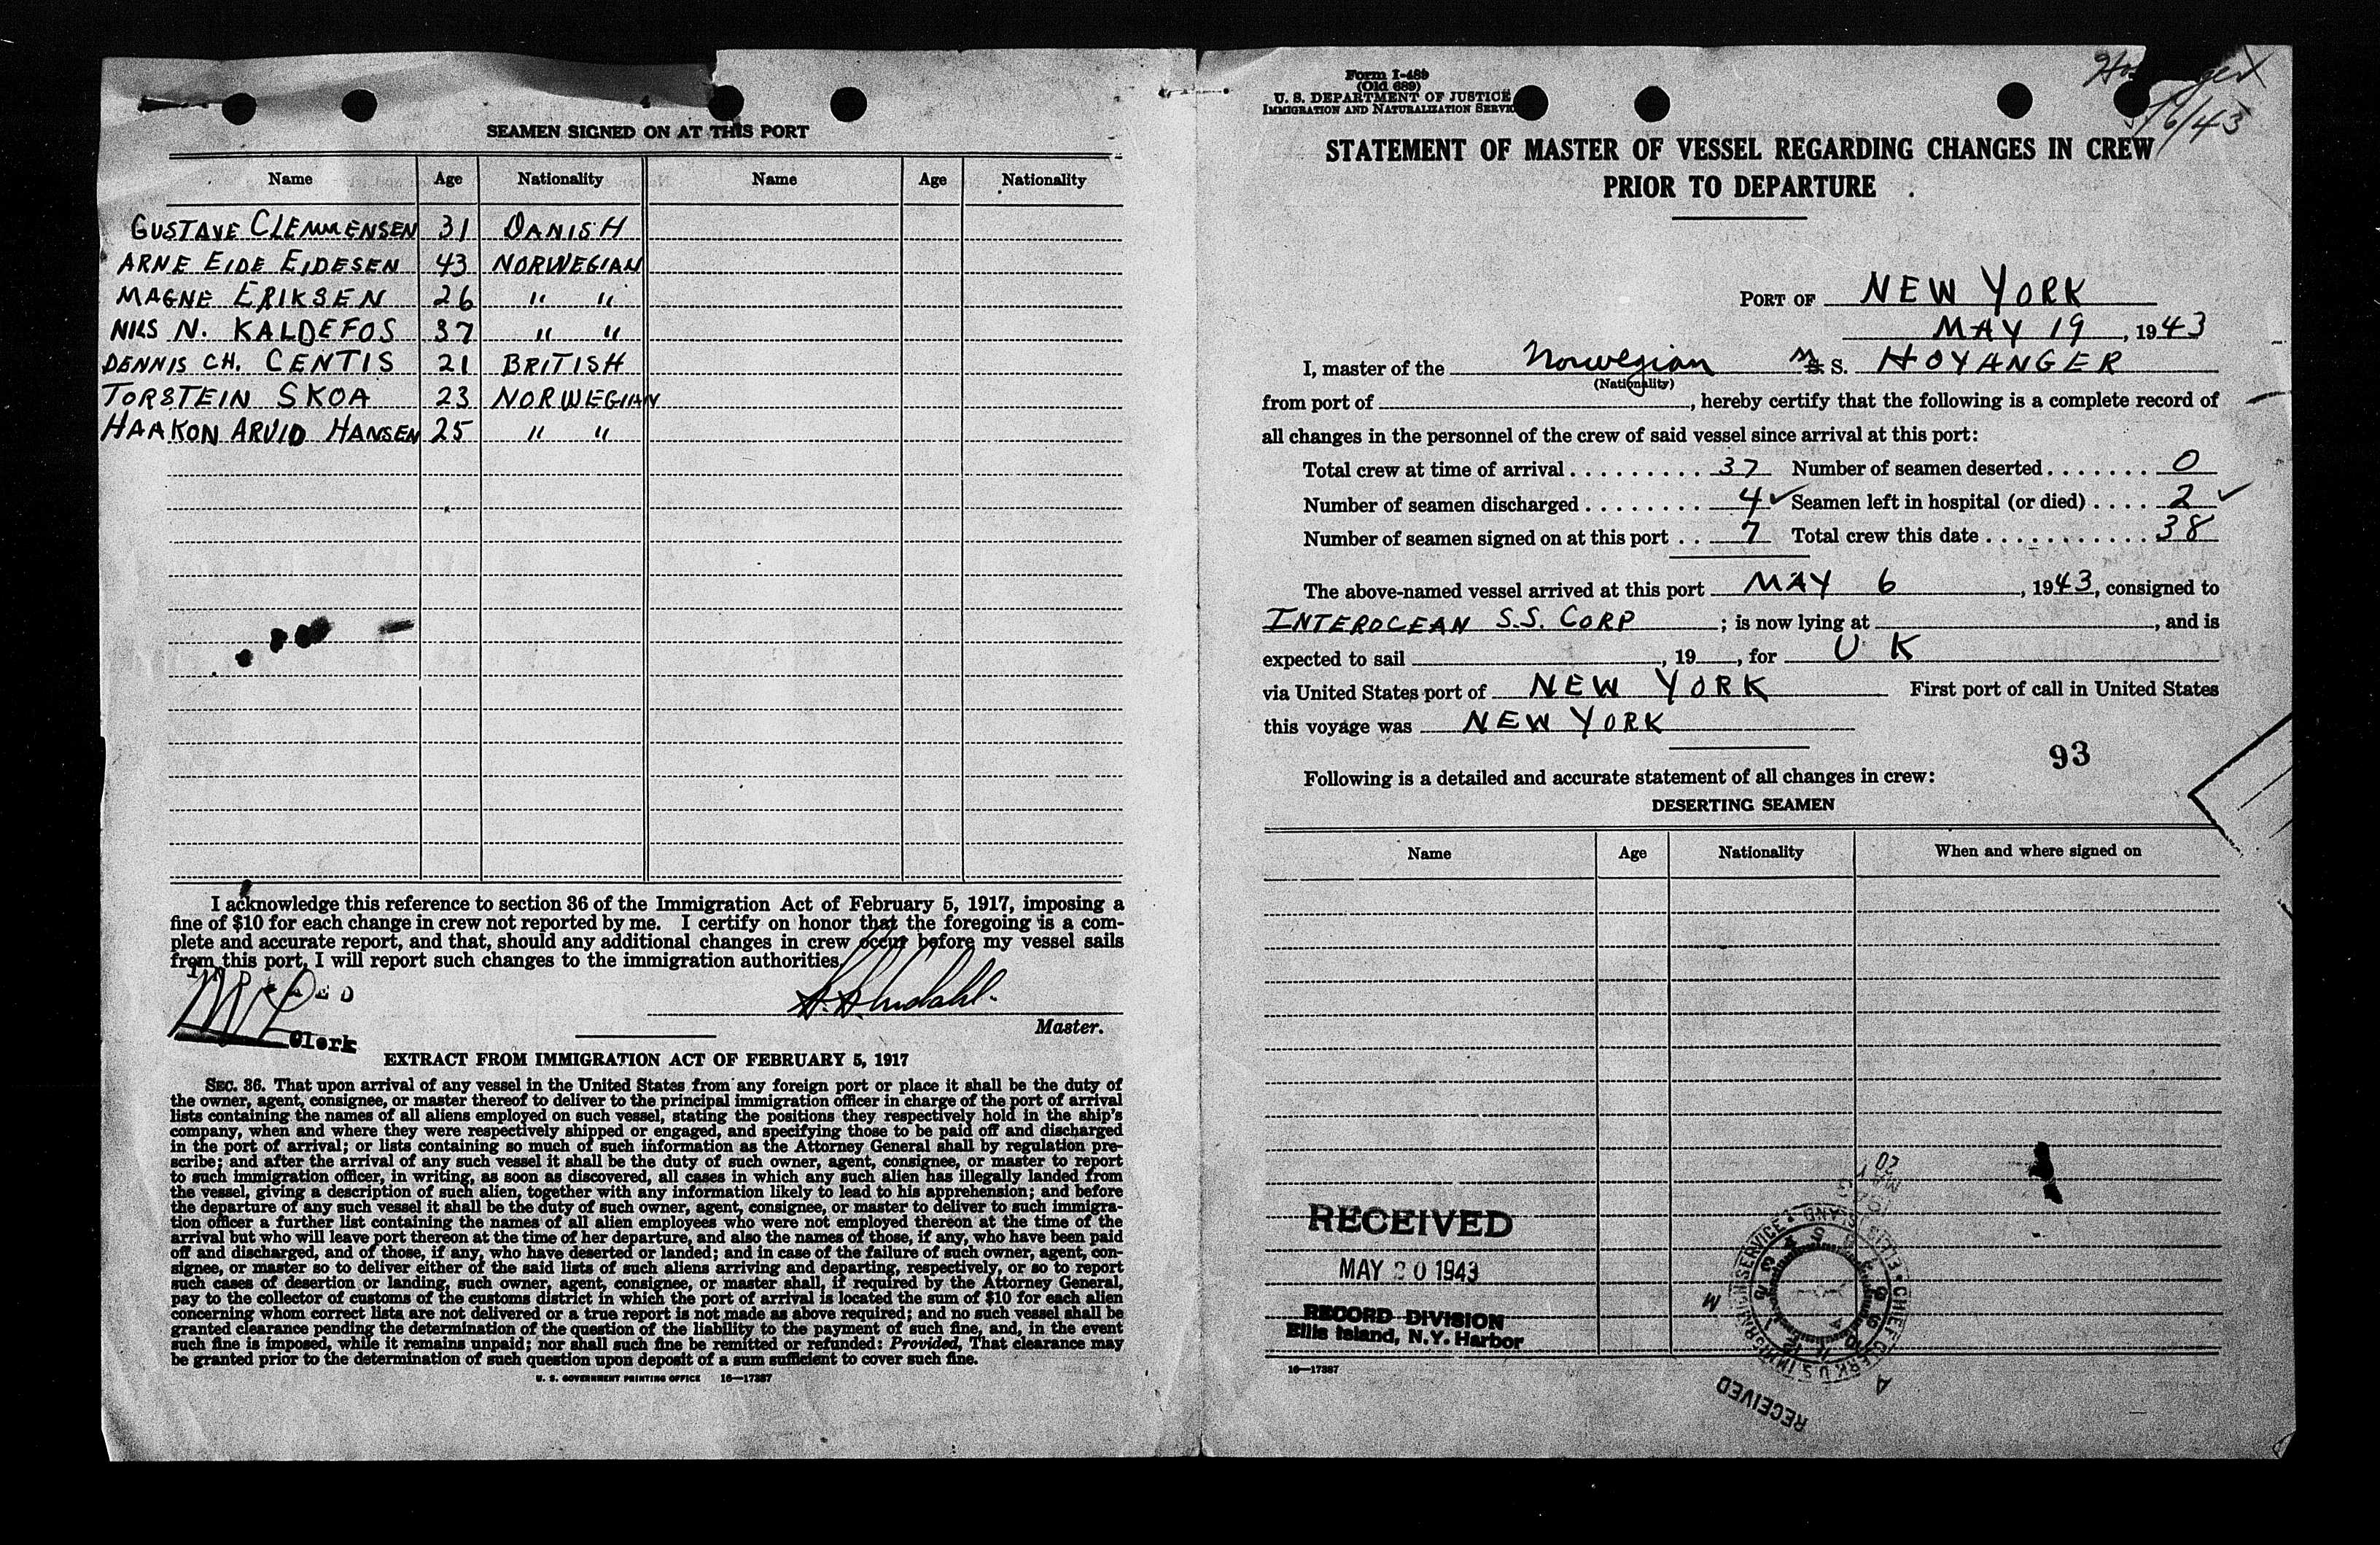 SEAMEN SIGNED ON AT THIS PORT
Name Age Nationality Name Age Nationality
GUSTAVE CLEMMENSEN 31 DANISH
ARNE EIDE EIDESEN 43 NORWEGIAN
MAGNE ERIKSEN 26 " "
NILS N. KALDEFOS 37 " "
DENNIS CH. CENTIS 21 BRITISH
TORSTEIN SKOA 23 NORWEGIAN
HAAKON ARVID HANSEN 25 " "
I acknowledge this reference to section 36 of the Immigration Act of February 5, 1917, imposing a
fine of $10 for each change in crew not reported by me. I certify on honor that the foregoing is a com-
plete and accurate report, and that, should any additional changes in crew occur before my vessel sails
from this port, I will report such changes to the immigration authorities.
Master.
Clerk
EXTRACT FROM IMMIGRATION ACT OF FEBRUARY 5, 1917
SEC. 36. That upon arrival of any vessel in the United States from any foreign port or place it shall be the duty of
the owner, agent, consignee, or master thereof to deliver to the principal immigration officer in charge of the port of arrival
lists containing the names of all aliens employed on such vessel, stating the positions they respectively hold in the ship's
company, when and where they were respectively shipped or engaged, and specifying those to be paid off and discharged
in the port of arrival; or lists containing so much of such information as the Attorney General shall by regulation pre-
scribe; and after the arrival of any such vessel it shall be the duty of such owner, agent, consignee, or master to report
to such immigration officer, in writing, as soon as discovered, all cases in which any such alien has illegally landed from
the vessel, giving a description of such alien, together with any information likely to lead to his apprehension; and before
the departure of any such vessel it shall be the duty of such owner, agent, consignee, or master to deliver to such immigra-
tion officer a further list containing the names of all alien employees who were not employed thereon at the time of the
arrival but who will leave port thereon at the time of her departure, and also the names of those, if any, who have been paid
off and discharged, and of those, if any, who have deserted or landed; and in case of the failure of such owner, agent, con-
signee, or master so to deliver either of the said lists of such aliens arriving and departing, respectively, or so to report
such cases of desertion or landing, such owner, agent, consignee, or master shall, if required by the Attorney General,
pay to the collector of customs of the customs district in which the port of arrival is located the sum of $10 for each alien
concerning whom correct lists are not delivered or a true report is not made as above required; and no such vessel shall be
granted clearance pending the determination of the question of the liability to the payment of such fine, and, in the event
such fine is imposed, while it remains unpaid; nor shall such fine be remitted or refunded: Provided, That clearance may
be granted prior to the determination of such question upon deposit of a sum sufficient to cover such fine.
U. S. GOVERNMENT PRINTING OFFICE 16—17387
Form I-489
(Old 689)
U. S. DEPARTMENT OF JUSTICE
IMMIGRATION AND NATURALIZATION SERVICE
STATEMENT OF MASTER OF VESSEL REGARDING CHANGES IN CREW
PRIOR TO DEPARTURE
PORT OF NEW YORK
MAY 19, 1943
I, master of the Norwegian M. S. HOYANGER
(Nationality)
from port of , hereby certify that the following is a complete record of
all changes in the personnel of the crew of said vessel since arrival at this port:
Total crew at time of arrival . . . . . . . . . 37 Number of seamen deserted . . . . . . . 0
Number of seamen discharged . . . . . . . . 4 ✓ Seamen left in hospital (or died) . . . . 2 ✓
Number of seamen signed on at this port . . 7 Total crew this date . . . . . . . . . . . 38
The above-named vessel arrived at this port MAY 6, 1943, consigned to
INTEROCEAN S.S. CORP ; is now lying at , and is
expected to sail , 19 , for U K
via United States port of NEW YORK First port of call in United States
this voyage was NEW YORK
93
Following is a detailed and accurate statement of all changes in crew:
DESERTING SEAMEN
Name Age Nationality When and where signed on
RECEIVED
MAY 20 1943
RECORD DIVISION
Ellis Island, N.Y. Harbor
16—17387
RECEIVED